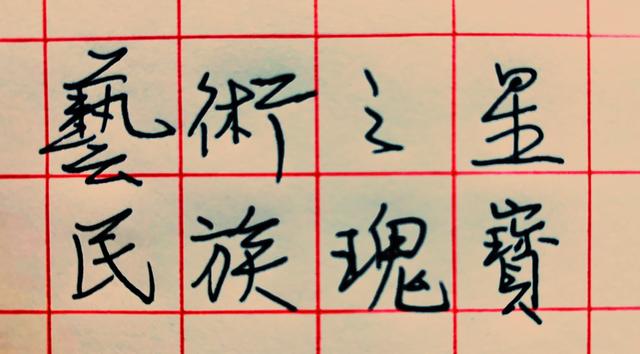 藝術之星
民族瑰寶